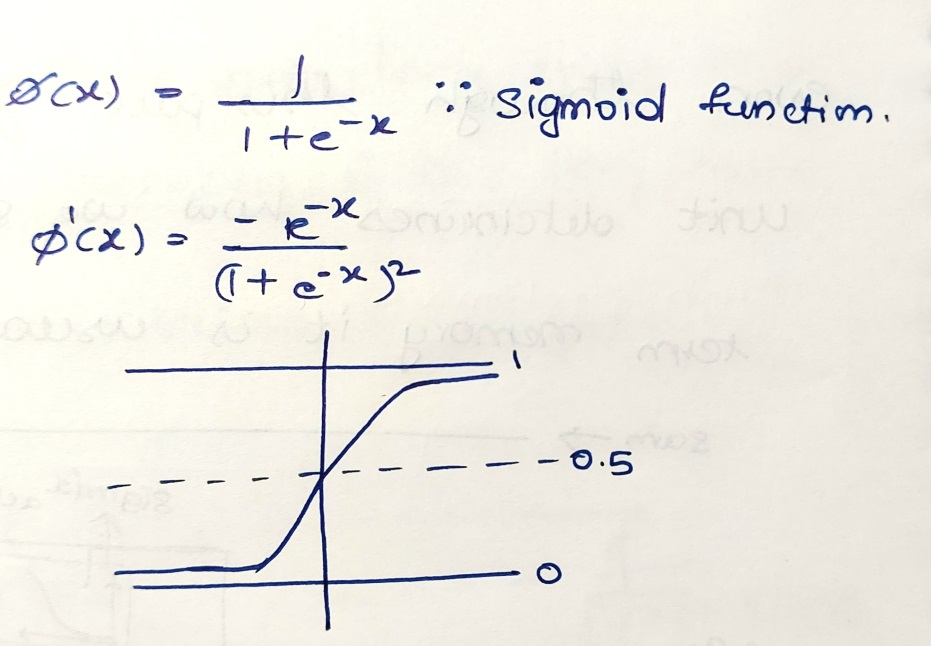 ø(x) = 1 / (1 + e^-x) ∵ Sigmoid function.
ø'(x) = - e^-x / (1 + e^-x)²
1
0.5
0